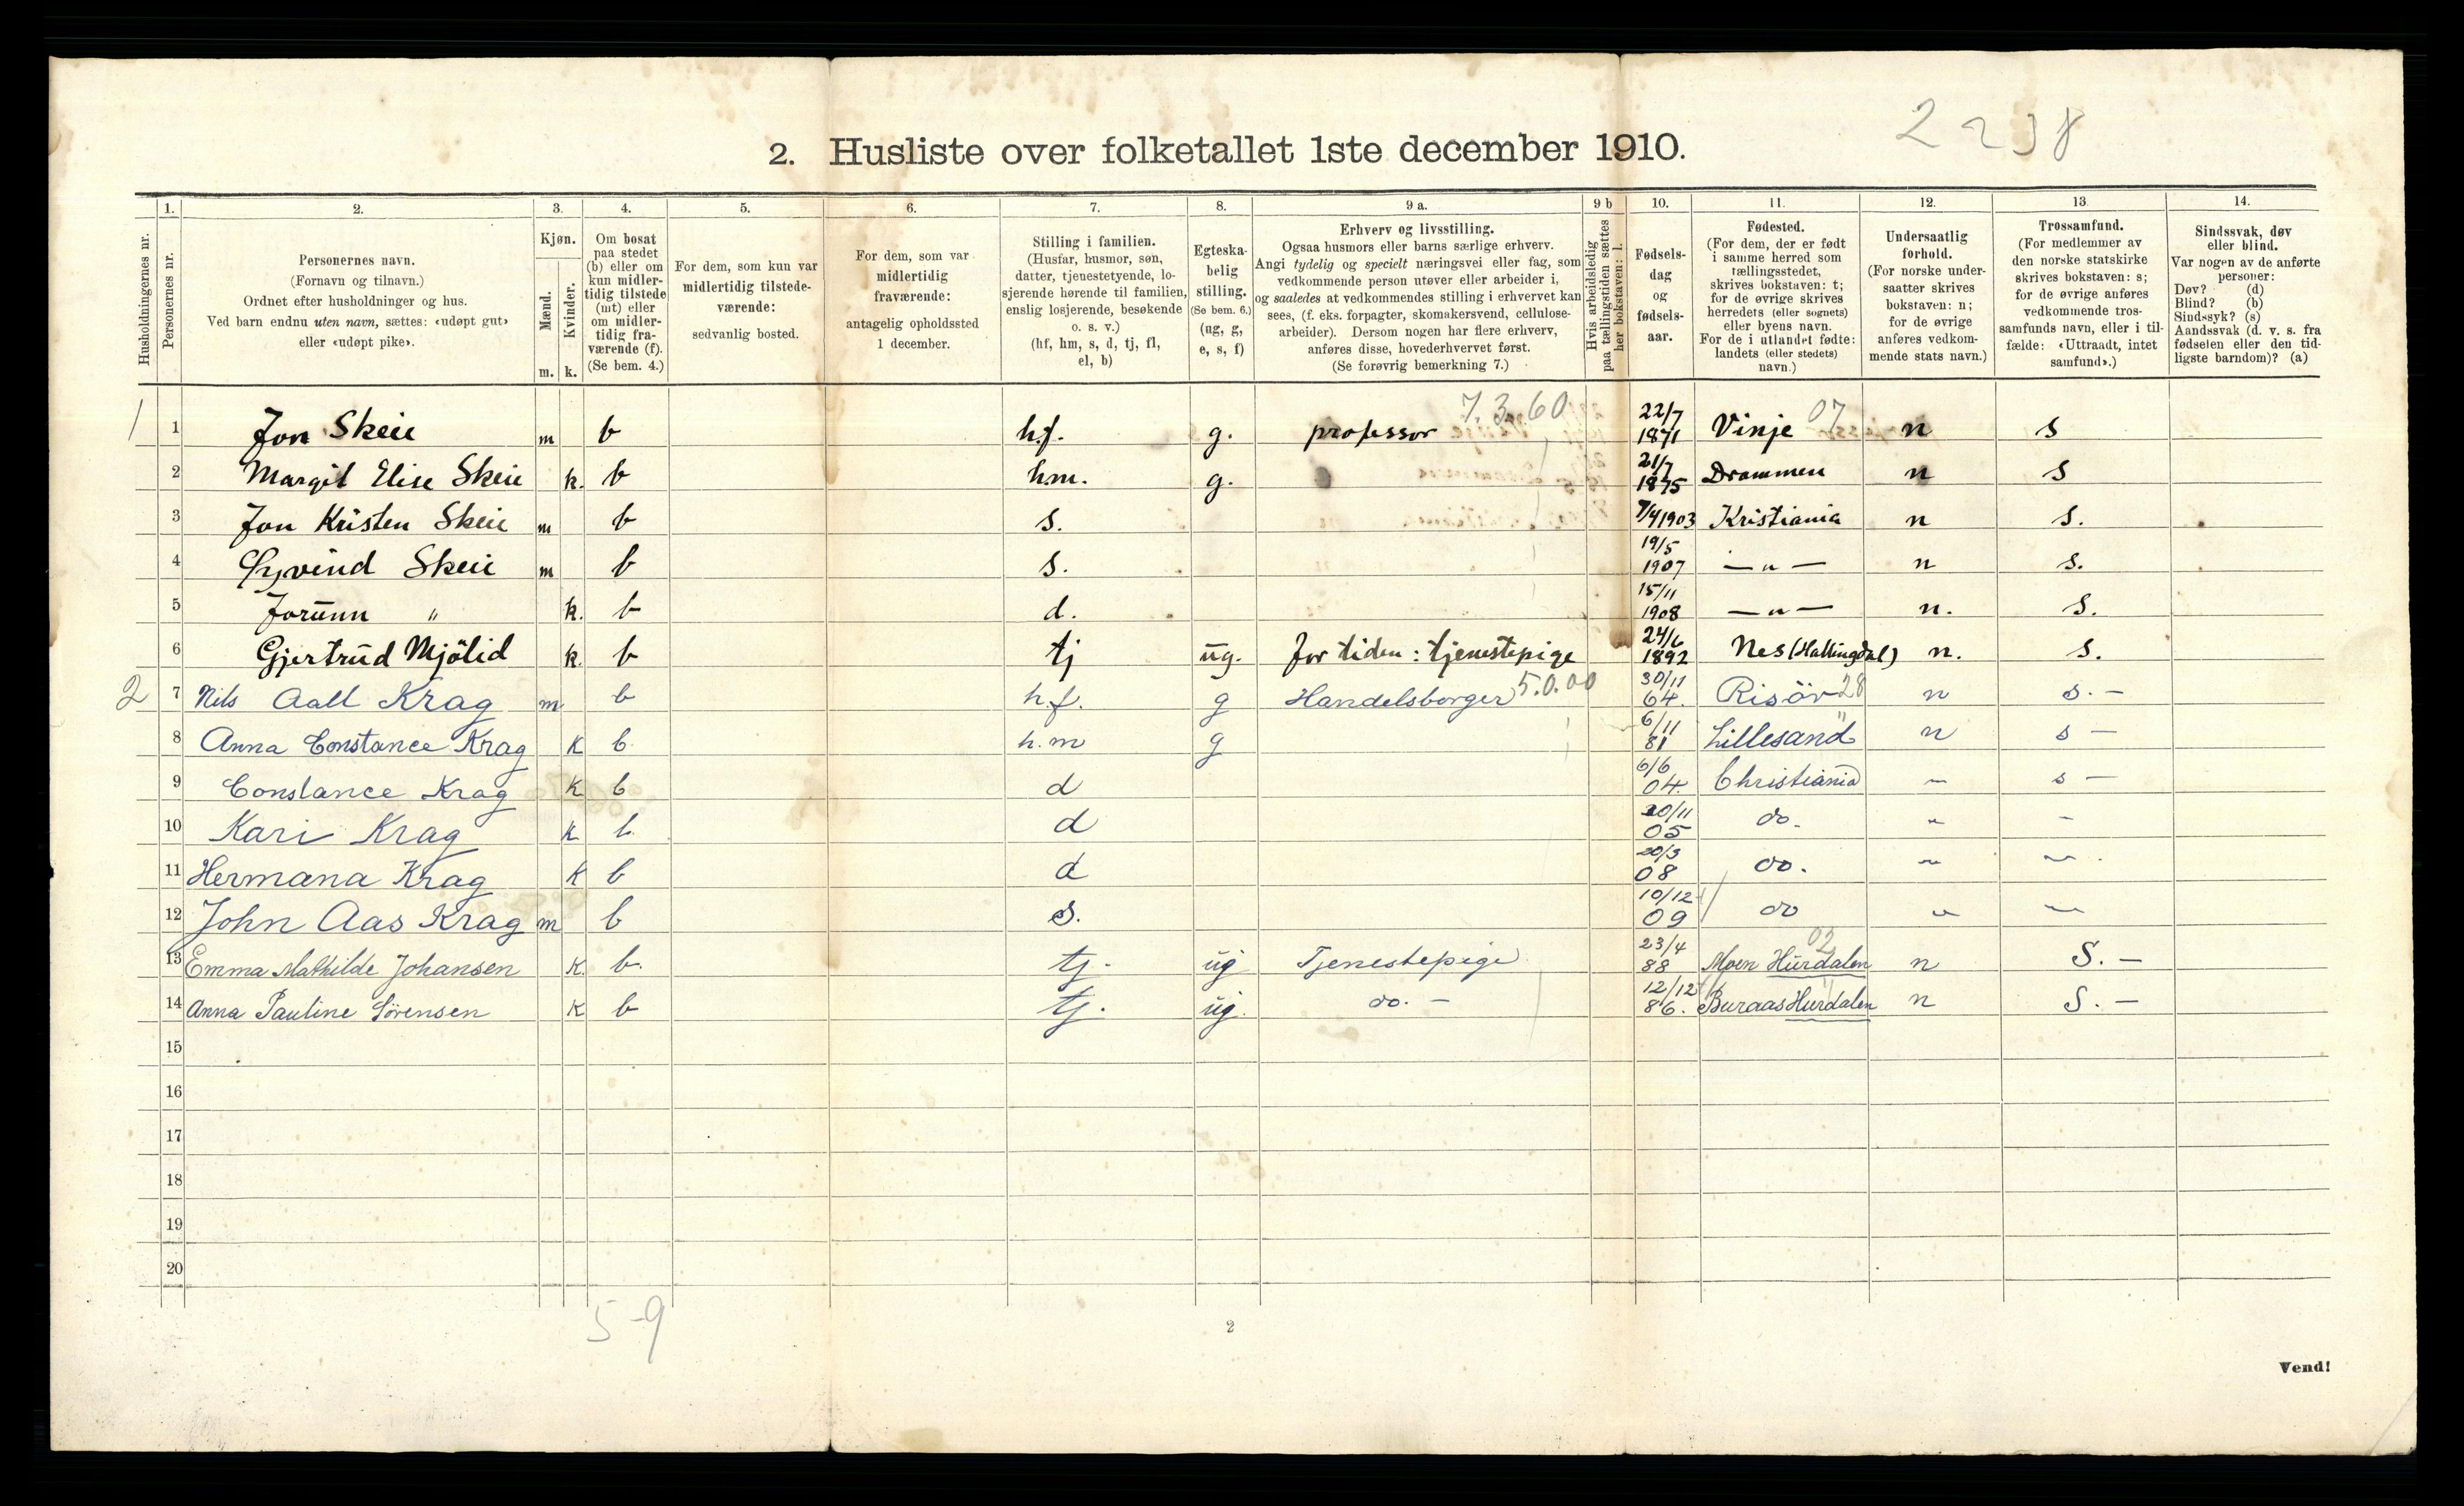 2238
2. Husliste over folketallet 1ste december 1910.
Husholdningernes nr.
1. Personernes nr.
2. Personernes navn.
(Fornavn og tilnavn.)
Ordnet efter husholdninger og hus.
Ved barn endnu uten navn, sættes: «udøpt gut»
eller «udøpt pike».
3. Kjøn.
Mænd. m.
Kvinder. k.
4. Om bosat
paa stedet
(b) eller om
kun midler-
tidig tilstede
(mt) eller
om midler-
tidig fra-
værende (f).
(Se bem. 4.)
5. For dem, som kun var
midlertidig tilstede-
værende:
sedvanlig bosted.
6. For dem, som var
midlertidig
fraværende:
antagelig opholdssted
1 december.
7. Stilling i familien.
(Husfar, husmor, søn,
datter, tjenestetyende, lo-
sjerende hørende til familien,
enslig losjerende, besøkende
o. s. v.)
(hf, hm, s, d, tj, fl,
el, b)
8. Egteska-
belig
stilling.
(Se bem. 6.)
(ug, g,
e, s, f)
9 a. Erhverv og livsstilling.
Ogsaa husmors eller barns særlige erhverv.
Angi tydelig og specielt næringsvei eller fag, som
vedkommende person utøver eller arbeider i,
og saaledes at vedkommendes stilling i erhvervet kan
sees, (f. eks. forpagter, skomakersvend, cellulose-
arbeider). Dersom nogen har flere erhverv,
anføres disse, hovederhvervet først.
(Se forøvrig bemerkning 7.)
9 b Hvis arbeidsledig
paa tællingstiden sættes
her bokstaven: l.
10. Fødsels-
dag
og
fødsels-
aar.
11. Fødested.
(For dem, der er født
i samme herred som
tællingsstedet,
skrives bokstaven: t;
for de øvrige skrives
herredets (eller sognets)
eller byens navn.
For de i utlandet fødte:
landets (eller stedets)
navn.)
12. Undersaatlig
forhold.
(For norske under-
saatter skrives
bokstaven: n;
for de øvrige
anføres vedkom-
mende stats navn.)
13. Trossamfund.
(For medlemmer av
den norske statskirke
skrives bokstaven: s;
for de øvrige anføres
vedkommende tros-
samfunds navn, eller i til-
fælde: «Uttraadt, intet
samfund».)
14. Sindssvak, døv
eller blind.
Var nogen av de anførte
personer:
Døv? (d)
Blind? (b)
Sindssyk? (s)
Aandssvak (d. v. s. fra
fødselen eller den tid-
ligste barndom)? (a)
1 1 Jon Skeie m b h.f. g. professor 7.3.60 22/7 1871 Vinje 07 n s
2 Margit Elise Skeie k. b hm. g. 21/7 1875 Drammen n s
3 Jon Kristen Skeie m b s. 7/4 1903 Kristiania n s.
4 Øyvind Skeie m b s. 19/5 1907 — " — n s.
5 Jorunn " k. b d. 15/11 1908 — " — n. s.
6 Gjertrud Mjölid k. b tj ug. for tiden: tjenestepige 24/6 1892 Nes (Hallingdal) n. s.
2 7 Nils Aall Krag m b h.f. g Handelsborger 5.0.00 30/11 64. Risör 28 n s. —
8 Anna Constance Krag K b h.m g 6/11 81 Lillesand " n s —
9 Constance Krag K b d 6/6 04. Christiania " s —
10 Kari Krag K b d 20/11 05 do. " "
11 Hermana Krag K b d 20/3 08 do. " "
12 John Aas Krag m b s. 10/12 09 do " "
13 Emma Mathilde Johansen K. b. tj. ug Tjenestepige 23/4 88 Moen Hurdalen 02 n S. —
14 Anna Pauline Sörensen K b tj. ug. do. — 12/12 86. Buraas Hurdalen " n S. —
15
16
17
18
19
20
5-9
2
Vend!